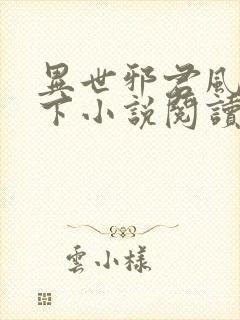 異世邪君風
下小說閱讀
雲小樣